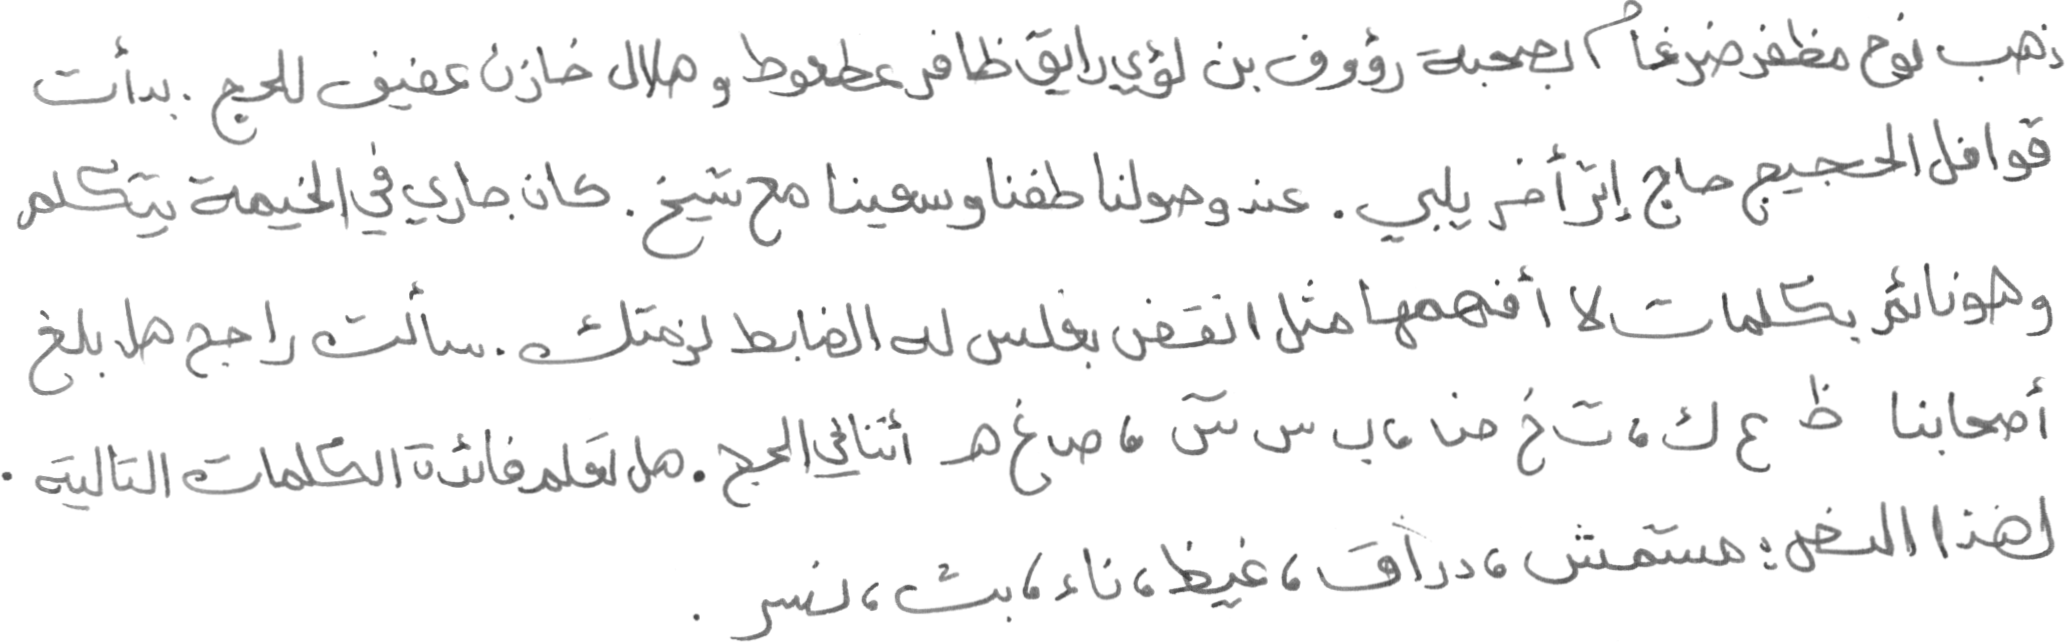 ذهب نوح مظفر ضرغام بصحبة رؤوف بن لؤي رايق ظافر عطعوط و هلال خازن عفيف للحج . بدأت
قوافل الحجيج حاج إثر أخر يلبي . عند وصولنا طفنا وسعينا مع شيخ . كان جاري في الخيمة يتكلم
وهو نائم بكلمات لا أفهمها مثل انقض بغلس له الضابط لزمتك . سألت راجح هل بلغ
أصحابنا ظ ع ك ، ت خ ض ، ب س ش ، ص غ هـ أثنائي الحج . هل تعلم فائدة الكلمات التالية
لهذا النص : مستمش ، دراق ، غيظ ، ناء ، بث ، نسر .